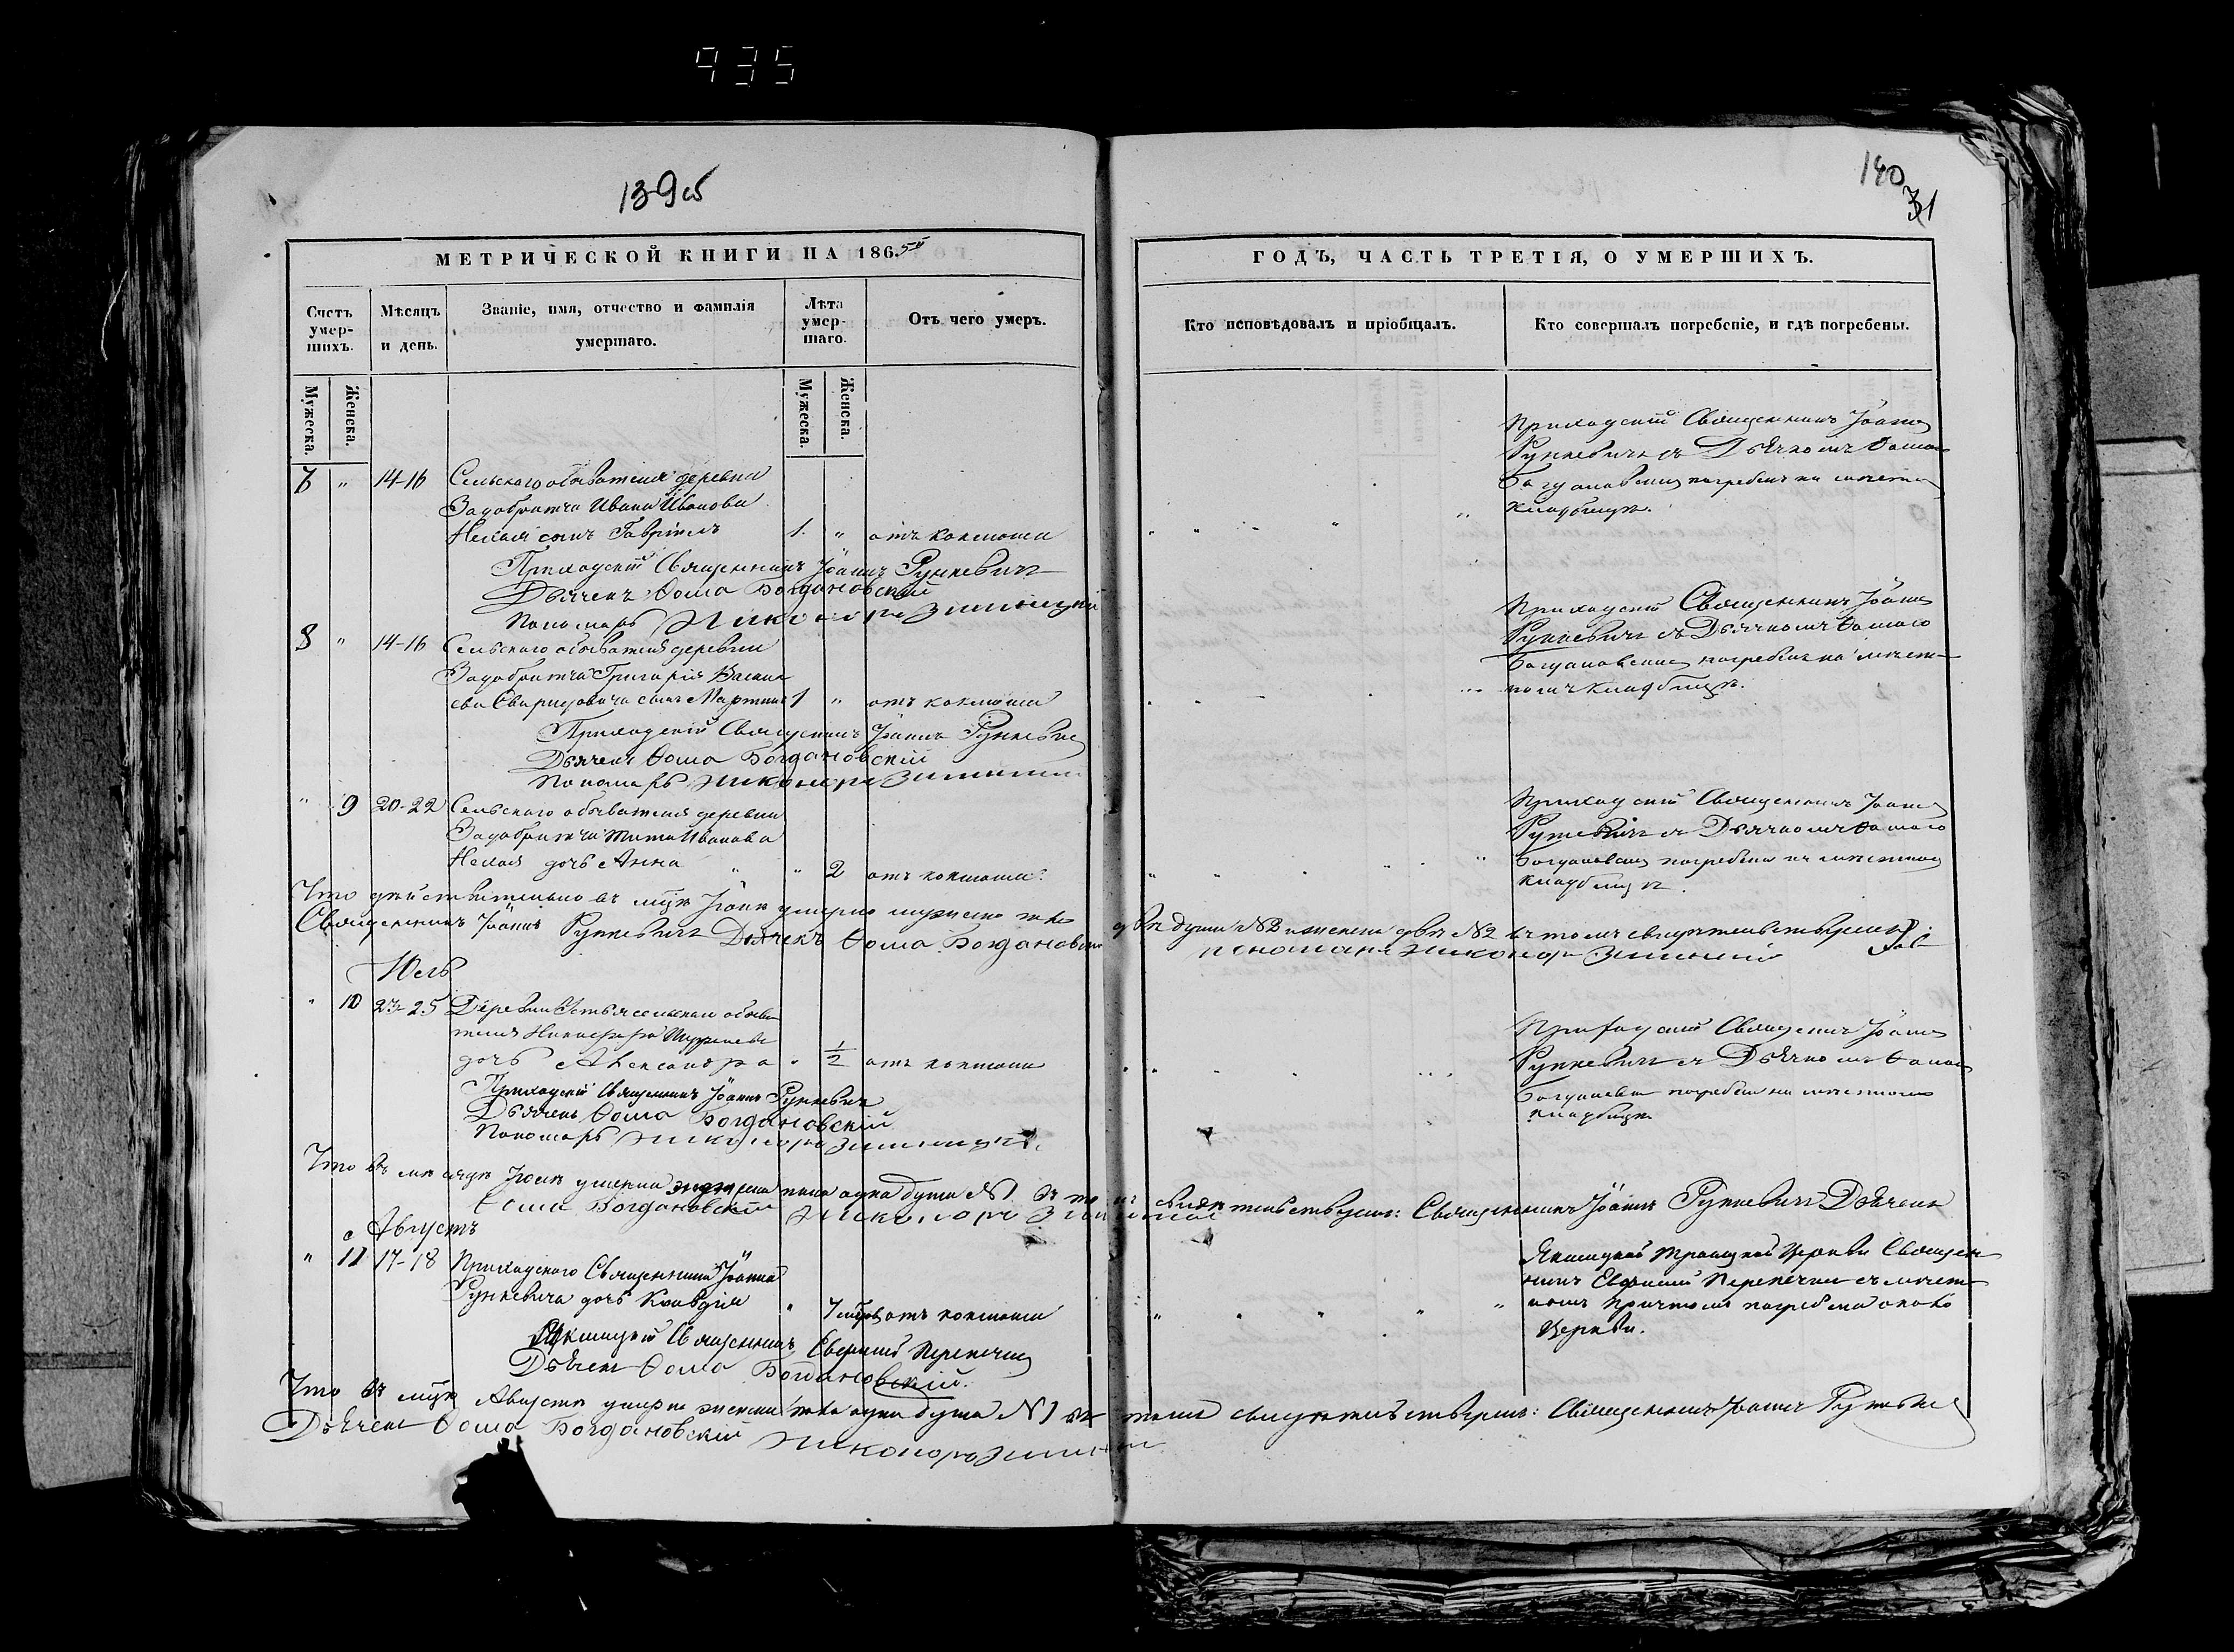 935
139об
140
31
МЕТРИЧЕСКОЙ КНИГИ НА 1865й
ГОДЪ, ЧАСТЬ ТРЕТІЯ, О УМЕРШИХЪ.
Счетъ умер-шихъ.
Мѣсяцъ и день.
Званіе, имя, отчество и фамилія умершаго.
Лѣта умер-шаго.
Отъ чего умеръ.
Кто исповѣдовалъ и пріобщалъ.
Кто совершалъ погребеніе, и гдѣ погребены.
Мужеска.
Женска.
Мужеска.
Женска.
7 " 14-16 Сельскаго обывателя деревни
Задобричья Ивана Иванова
сынъ Гавріилъ 1. " отъ коклюша
Приходскій Священникъ Іоаннъ
Рункевичъ съ Дьячкомъ Ѳомою
Богдановскимъ погребенъ на
кладбищѣ.
Приходскій Священникъ Іоаннъ Рункевичъ
Дьячекъ Ѳома Богдановскій
Пономарь Никаноръ
8 " 14-16 Сельскаго обывателя деревни
Задобричья Григорія Василь
ева сынъ Мартинъ 1 " отъ коклюша
Приходскій Священникъ Іоаннъ
Рункевичъ съ Дьячкомъ Ѳомою
Богдановскимъ погребенъ на мѣст-
номъ кладбищѣ.
Приходскій Священникъ Іоаннъ Рункевичъ
Дьячекъ Ѳома Богдановскій
Пономарь Никаноръ
" 9 20-22 Сельскаго обывателя деревни
Задобричья Тита Иванова
дочь Анна " " 2 отъ коклюша.
Приходскій Священникъ Іоаннъ
Рункевичъ съ Дьячкомъ Ѳомою
Богдановскимъ погребена на мѣстномъ
кладбищѣ.
Что дѣйствительно въ мцѣ Іюнѣ умерло мужеска пола двѣ души №2 и женска двѣ №2 въ томъ свидѣтельствуемъ:
Священникъ Іоаннъ Рункевичъ Дьячекъ Ѳома Богдановскій пономарь Никаноръ
Юль
" 10 23-25 Деревни сельскаго обыва
теля Никифора
дочь Александра " 1/2 отъ коклюша
Приходскій Священникъ Іоаннъ
Рункевичъ съ Дьячкомъ Ѳомою
Богдановскимъ погребена на мѣстномъ
кладбищѣ
Приходскій Священникъ Іоаннъ Рункевичъ
Дьячекъ Ѳома Богдановскій
Пономарь Никаноръ
Что въ мѣсяцѣ Іюлѣ умерла женска пола одна душа №1. въ томъ свидѣтельствуемъ: Священникъ Іоаннъ Рункевичъ Дьячекъ
Ѳома Богдановскій Никаноръ
Августъ
" 11 17-18 Приходскаго Священника Іоанна
Рункевича дочь Клавдія " отъ коклюша
Троицкой Церкви Священ-
никъ съ мѣст-
нымъ причтомъ погребена около
Церкви.
Священникъ
Дьячекъ Ѳома Богдановскій.
Что въ мцѣ Августѣ умерла женска пола одна душа №1 въ томъ свидѣтельствуемъ: Священникъ Іоаннъ Рункевичъ
Дьячекъ Ѳома Богдановскій Никаноръ